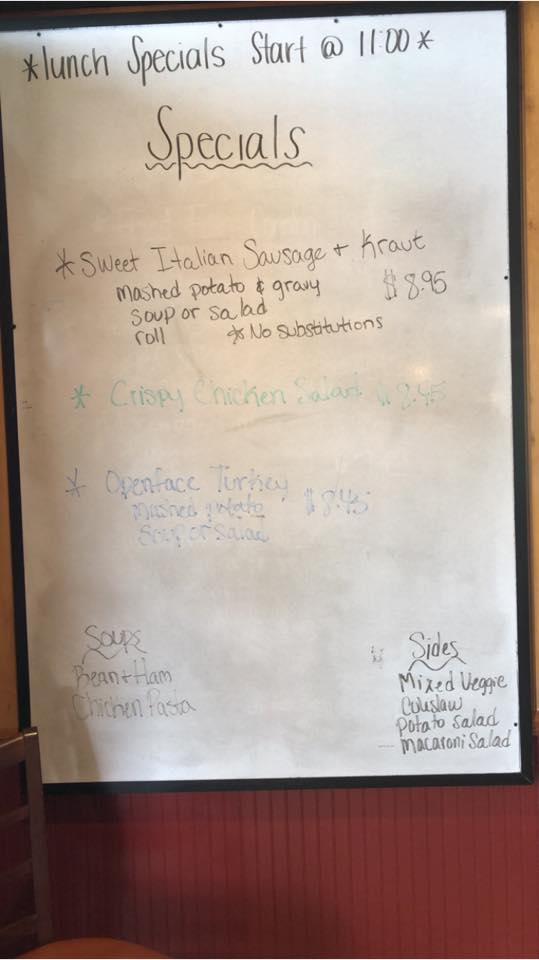 *lunch Specials Start @ 11:00*
Specials
* Sweet Italian Sausage + Kraut
mashed potato & gravy $8.95
soup or salad
roll * No substitutions
* Crispy Chicken Salad $8.45
* Openface Turkey
mashed potato $8.45
soup or salad
Soups
Bean + Ham
Chicken Pasta
Sides
Mixed Veggie
Coleslaw
potato Salad
macaroni Salad